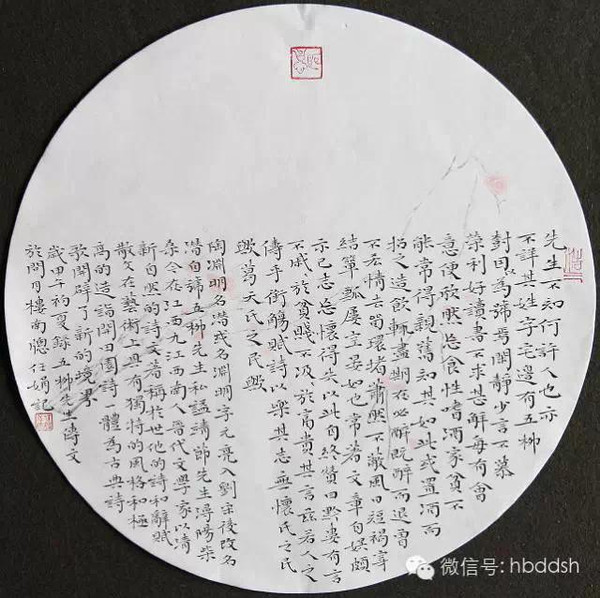 先生不知何許人也亦
不詳其姓字宅邊有五柳
尌因以為號焉閒靜少言不慕
榮利好讀書不求甚解每有會
意便欣然忘食性嗜酒家貧不
能常得親舊知其如此或置酒而
招之造飲輒盡期在必醉既醉而退曾
不吝情去留環堵蕭然不蔽風日短褐穿
結簞瓢屢空晏如也常著文章自娛頗
示己志忘懷得失以此自終贊曰黔婁有言
不戚於貧賤不汲、於富貴其言茲若人之
儔乎銜觴賦詩以樂其志無懷氏之民
歟葛天氏之民歟
陶淵明名潛或名淵明字元亮入劉宋後改名
潛自號五柳先生私謚靖節先生潯陽柴
桑今在江西九江西南人晉代文學家以清
新自然的詩文著稱於世他的詩和辭賦
散文在藝術上具有獨特的風格和極
高的造詣開田園詩一體為古典詩
歌開辟了新的境界
歲甲午初夏錄五柳先生傳文
於問月樓南牕任娟記
微信号: hbddsh